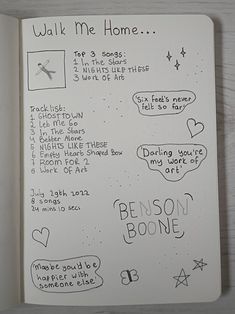 Walk Me Home...
Top 3 songs:
1 In the Stars
2 NIGHTS LIKE THESE
3 Work OF Art
Tracklist:
1 GHOSTTOWN
2 Let Me Go
3 In the Stars
4 Better Alone
5 NIGHTS LIKE THESE
6 Empty Heart Shaped Box
7 ROOM FOR 2
8 Work OF Art
'Six feet's never
felt so far'
'Darling you're
my work of
art'
July 29th 2022
8 songs
24 mins 10 secs
BENSON
BOONE
'Maybe you'd be
happier with
someone else'
BB